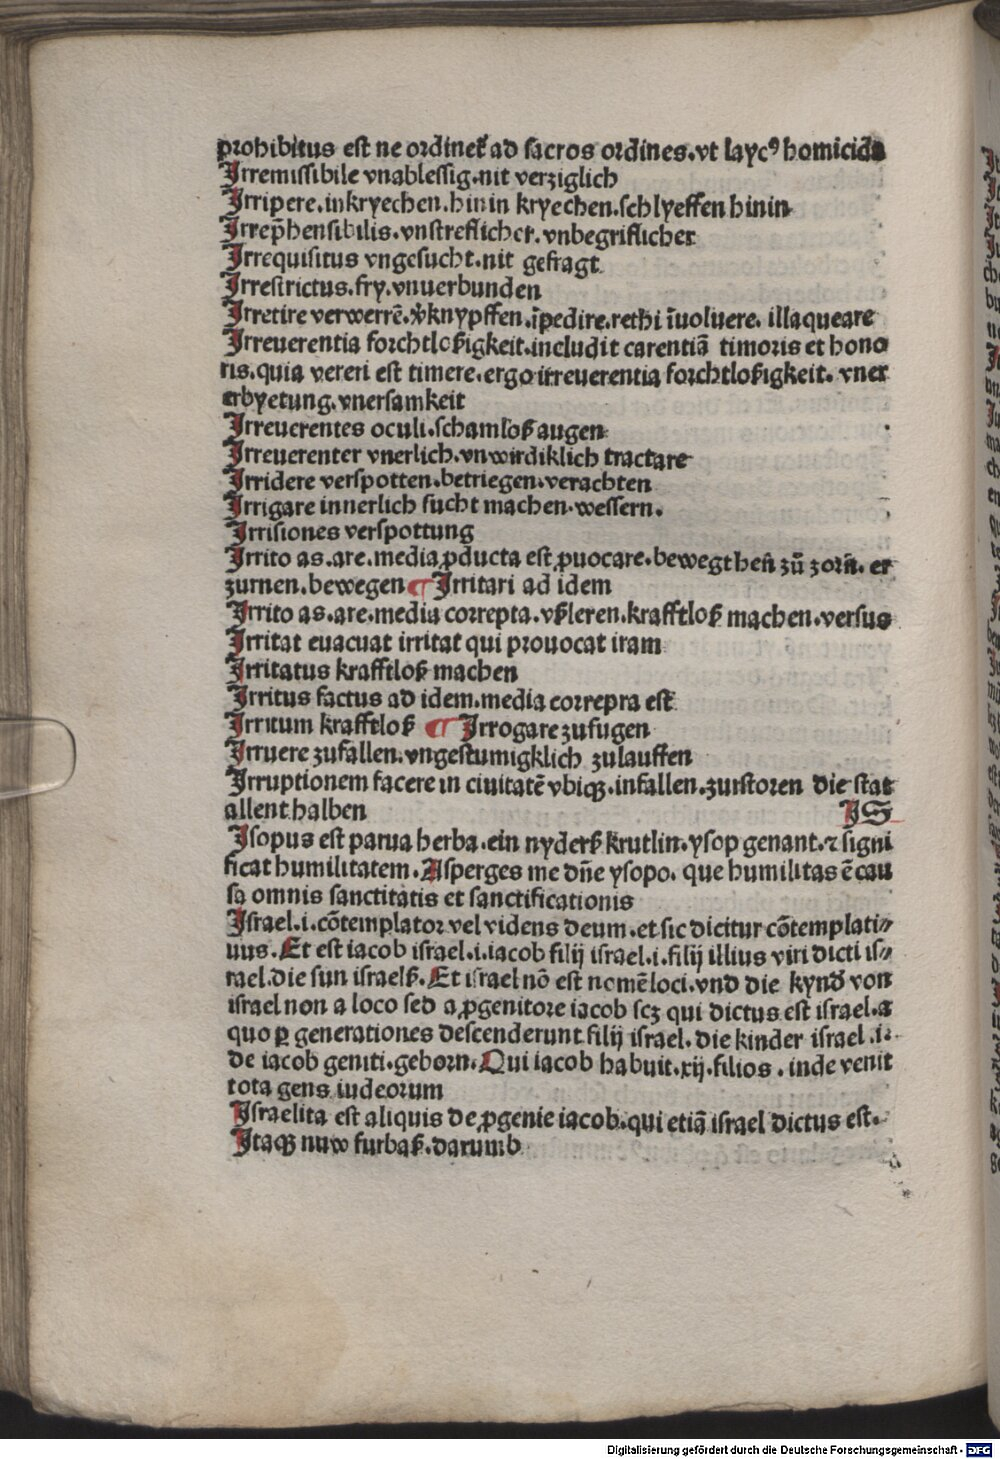 prohibitus est ne ordinet᷑ ad sacros ordines.vt laycꝰ homicida
Irremissibile vnablessig.nit verziglich
Irripere.inkryechen.hinin kryechen.schlyeffen hinin
Irrep̄hensibilis.vnstreflicher.vnbegriflicher
Irrequisitus vngesucht.nit gefragt
Irrestrictus.fry.vnuerbunden
Irretire verwerrē.v̓knypffen.īpedire.rethi īuoluere.illaqueare
Irreuerentia forchtloßigkeit.includit carentiā timoris et hono
ris.quia vereri est timere.ergo irreuerentia forchtloßigkeit.vner
erbyetung.vnersamkeit
Irreuerentes oculi.schamloß augen
Irreuerenter vnerlich.vnwirdiklich tractare
Irridere verspotten.betriegen.verachten
Irrigare innerlich fucht machen.wessern.
Irrisiones verspottung
Irrito as.are.media ꝓducta est ꝓuocare.bewegt hen̄ zū zorn̄.er
zurnen.bewegen ¶ Irritari ad idem
Irrito as.are.media correpta.vßleren.krafftloß machen.versus
Irritat euacuat irritat qui prouocat iram
Irritatus krafftloß machen
Irritus factus ad idem.media correpra est
Irritum krafftloß ¶ Irrogare zufugen
Irruere zufallen.vngestumigklich zulauffen
Irruptionem facere in ciuitatē vbiqꝫ.infallen.zurstoren die stat
allent halben IS
Isopus est parua herba.ein nyderß krutlin.ysop genant.⁊ signi
ficat humilitatem.Asperges me dn̄e ysopo.que humilitas ē cau
sa omnis sanctitatis et sanctificationis
Israel.i.cōtemplator vel videns deum.et sic dicitur cōtemplati⸗
uus.Et est iacob israel.i.iacob filij israel.i.filij illius viri dicti is⸗
rael.die sun israelß.Et israel nō est nomē loci.vnd die kynd̓ von
israel non a loco sed a ꝓgenitore iacob scꝫ qui dictus est israel.a
quo ꝑ generationes descenderunt filij israel.die kinder israel.i.
de iacob geniti.geborn.Qui iacob habuit.xij.filios.inde venit
tota gens iudeorum
Israelita est aliquis de ꝓgenie iacob.qui etiā israel dictus est.
Itaqꝫ nuw furbaß.darumb
Digitalisierung gefördert durch die Deutsche Forschungsgemeinschaft - DFG